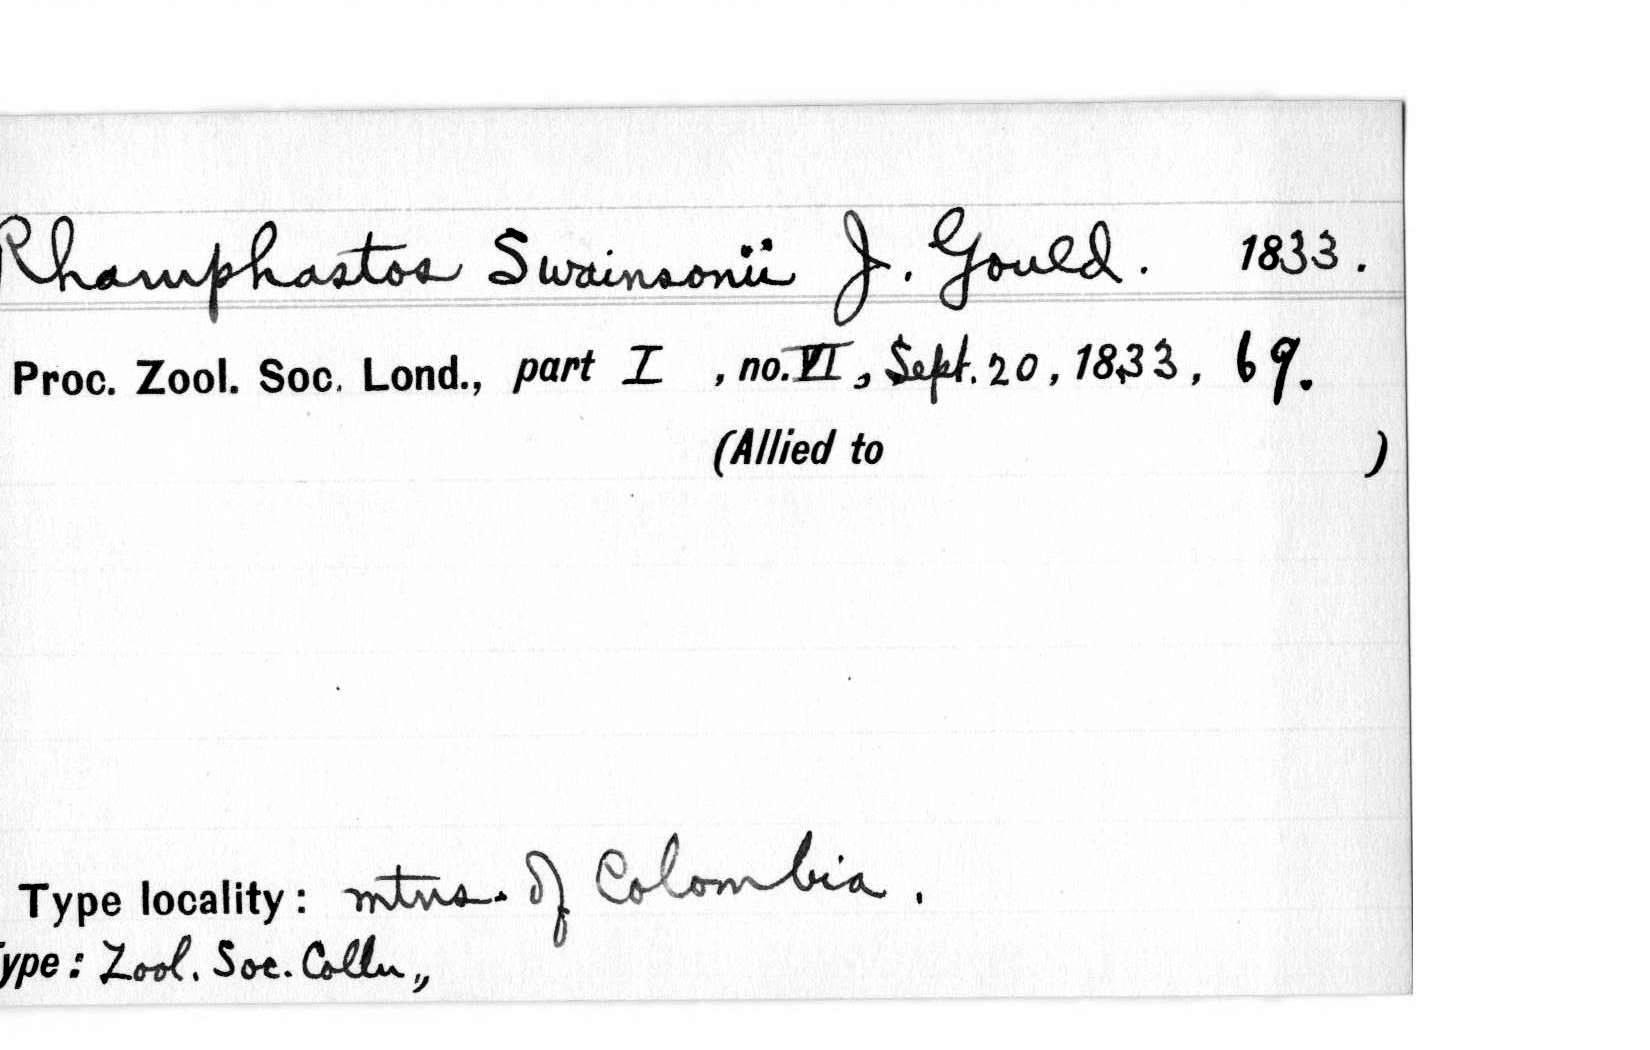 Rhamphastos Swainsonii J. Gould. 1833.
Proc. Zool. Soc. Lond., part I, no. VI, Sept. 20, 1833, 69.
(Allied to )
Type locality: mtns. of Colombia.
Type: Zool. Soc. Colln,,